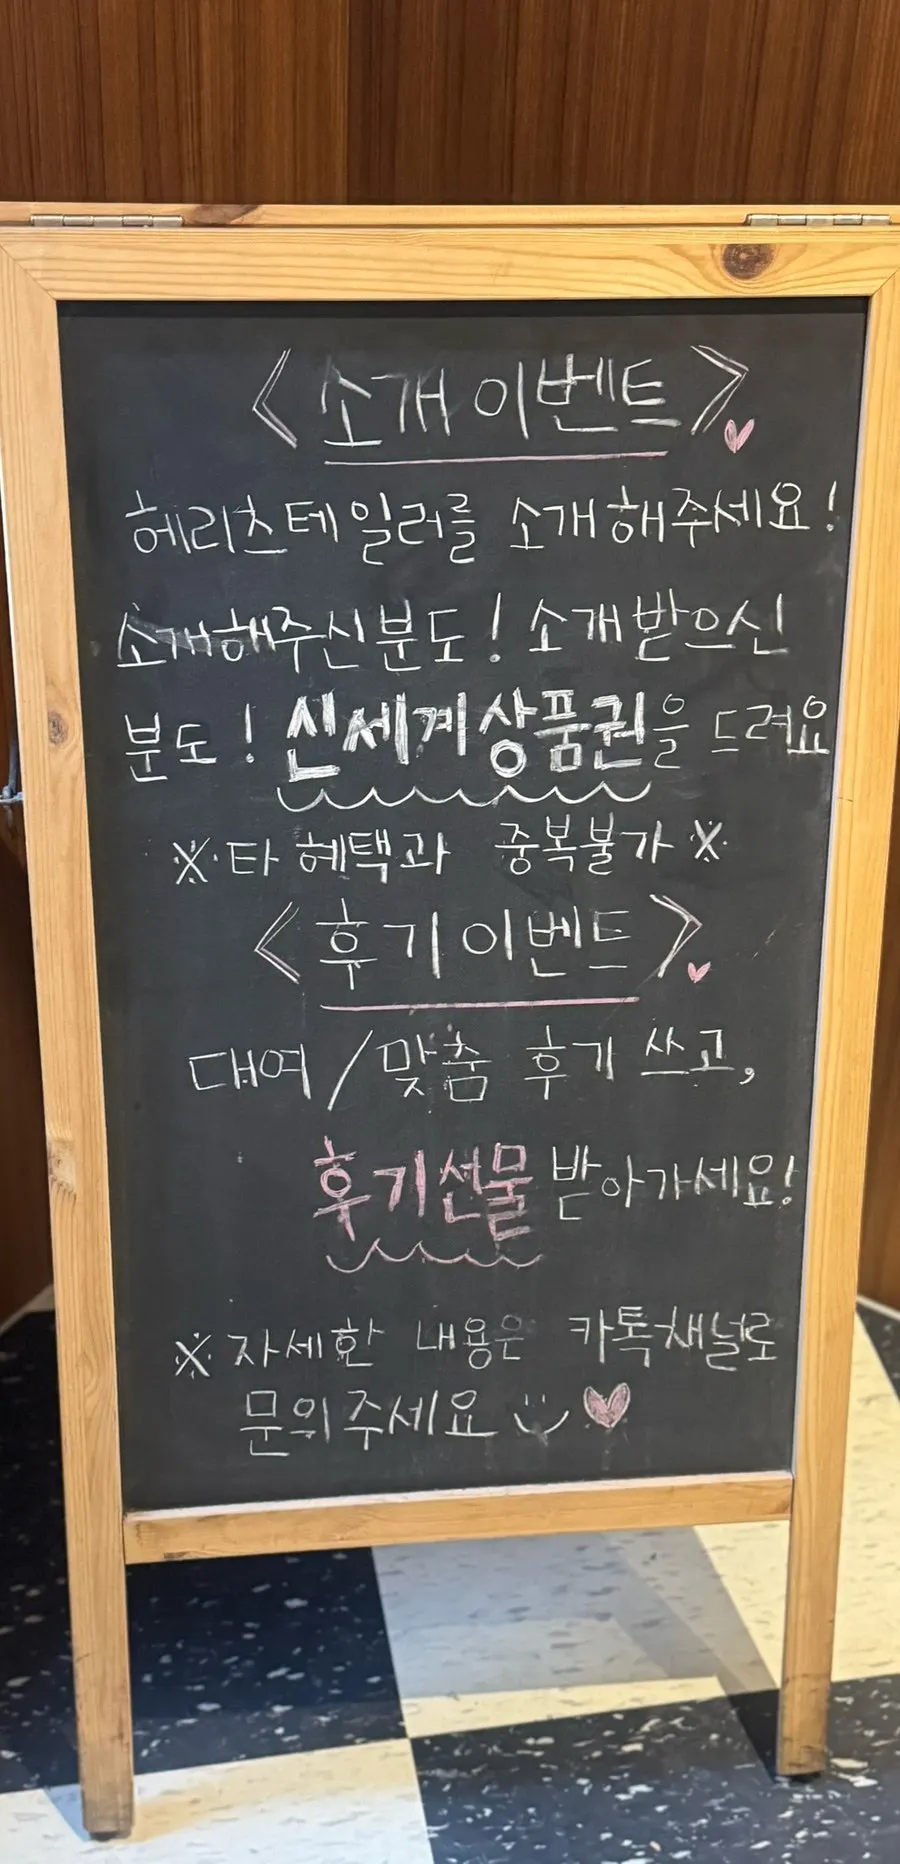 <소개 이벤트>
헤리츠테일러를 소개해주세요!
소개해주신분도! 소개받으신
분도! 신세계상품권을 드려요
※타 혜택과 중복불가※
<후기이벤트>
대여/맞춤 후기 쓰고,
후기선물 받아가세요!
※자세한 내용은 카톡채널로
문의주세요